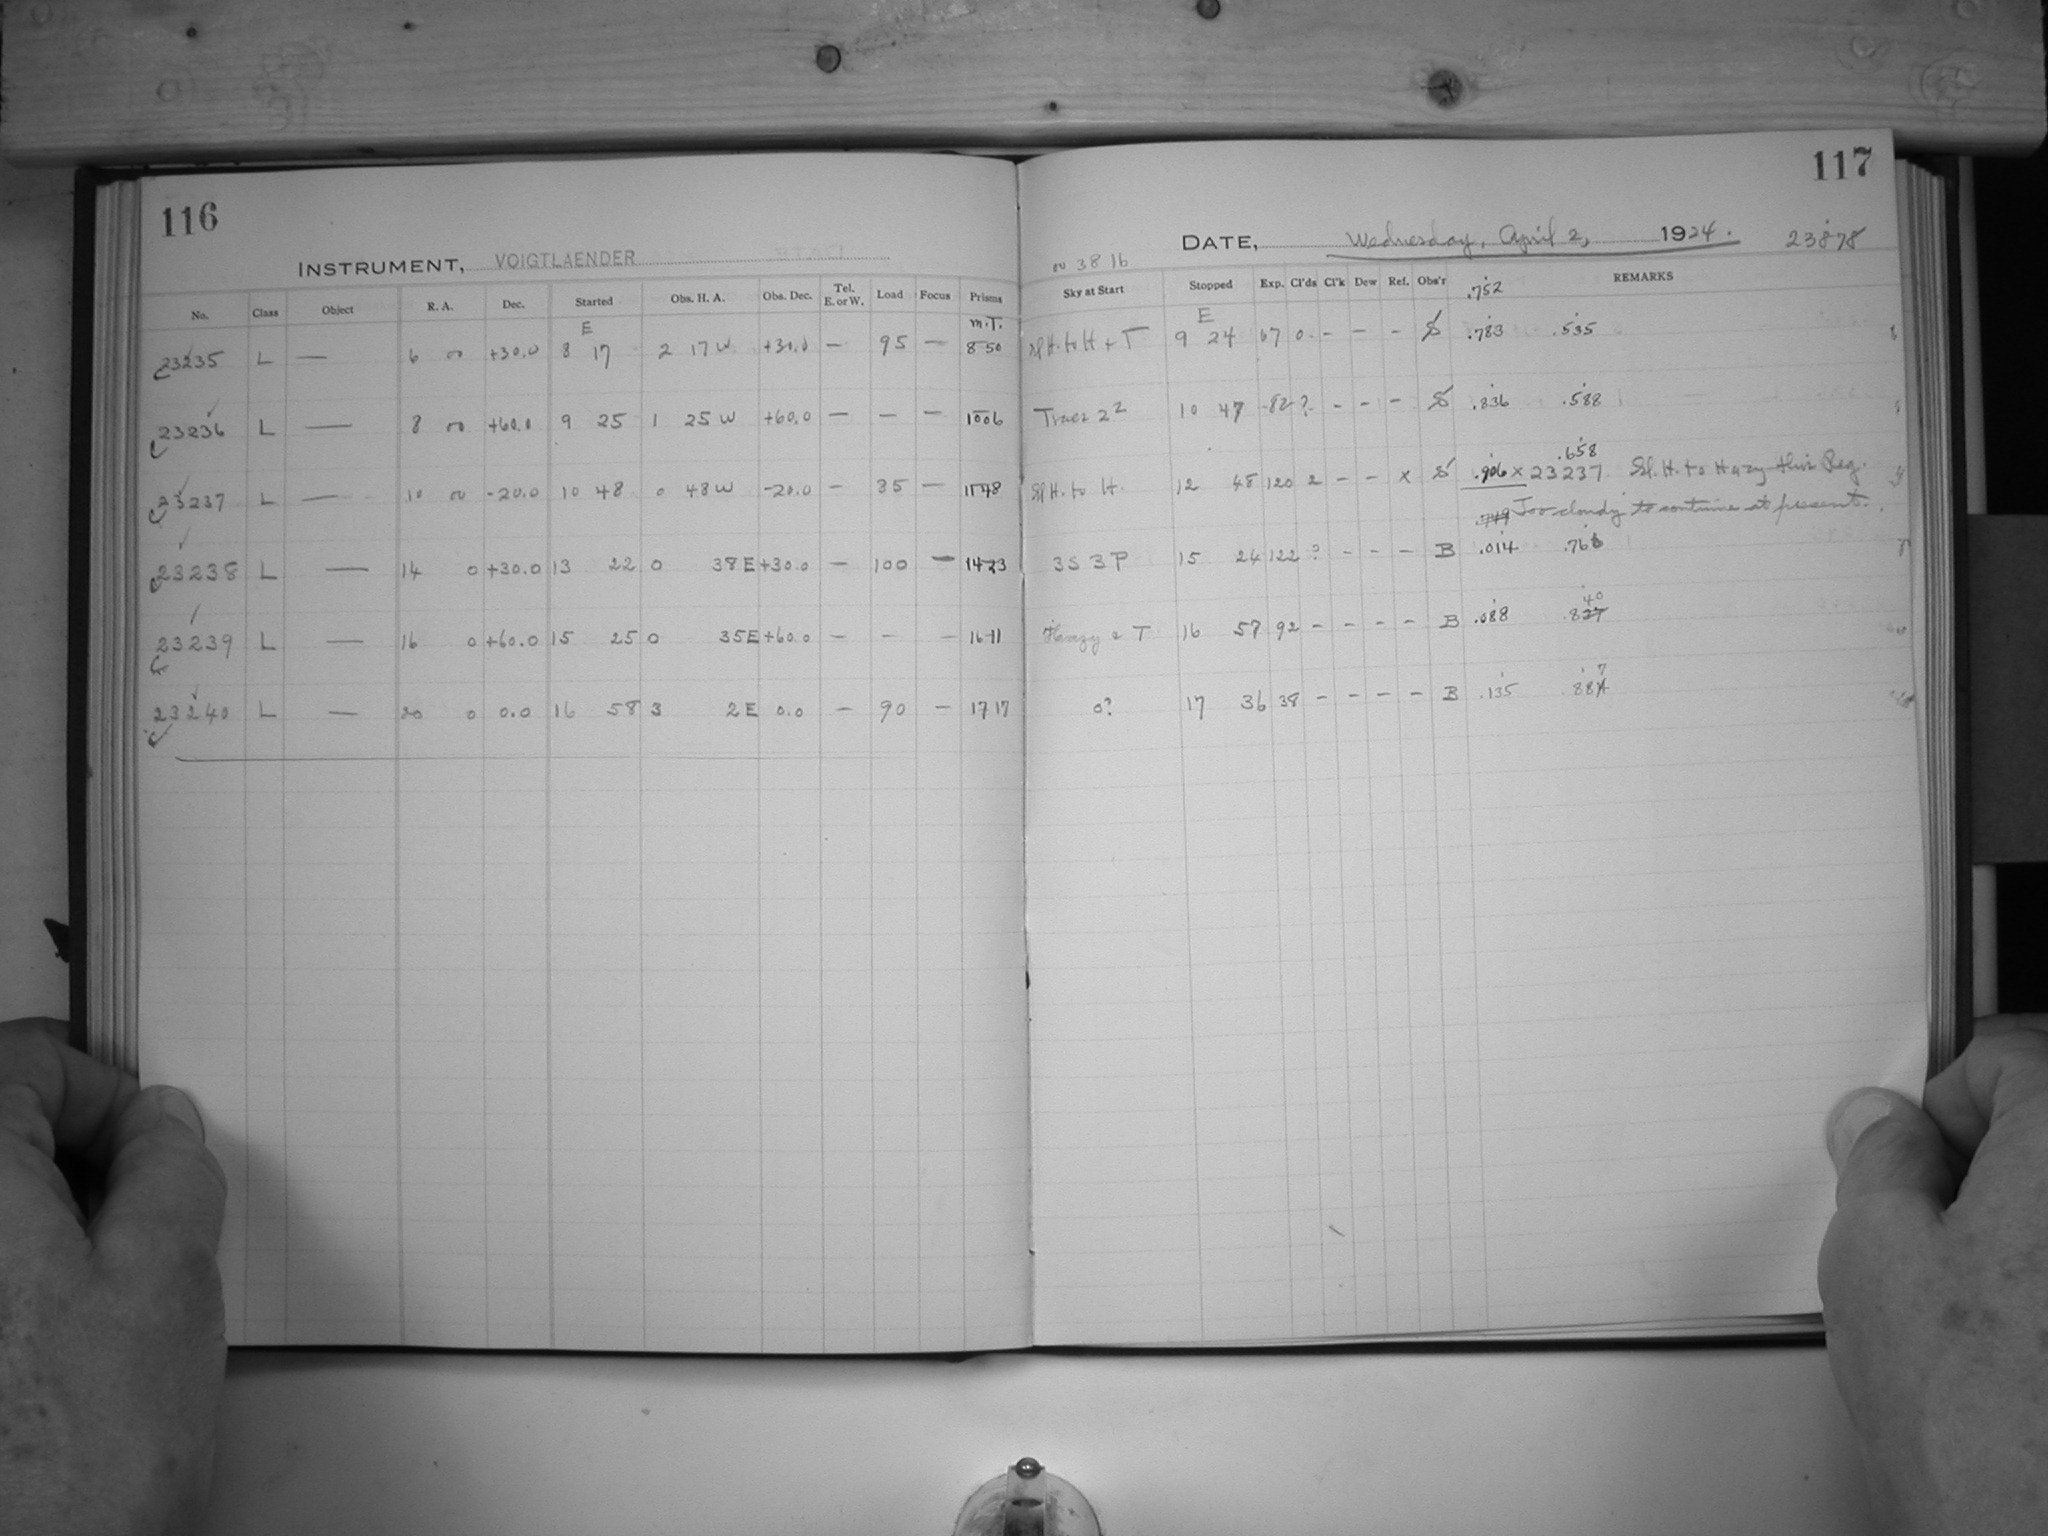 116
117
INSTRUMENT, VOIGTLAENDER
DATE, Wednesday, April 2, 1924. 23878
00 38 16
No. Class Object R. A. Dec. Started Obs. H. A. Obs. Dec. Tel. E. or W. Load Focus Prisms Sky at Start Stopped Exp. Cl'ds Cl'k Dew Ref. Obs'r REMARKS
.752
E m.T. E
23235 L — 6 00 +30.0 8 17 2 17 W +30.0 — 95 — 8 50 Sl H. to H + T 9 24 67 0 - - - S .783 .535
23236 L — 8 00 +60.0 9 25 1 25 W +60.0 — — — 1006 Traces 2² 10 47 82 ? - - - S .836 .588
.658
23237 L — 10 00 -20.0 10 48 0 48 W -20.0 — 85 — 1148 Sl H. to H. 12 48 120 2 - - x S .906 x 23237. Sl. H. to Hazy this Reg.
.749 Too cloudy to continue at present.
23238 L — 14 0 +30.0 13 22 0 38 E +30.0 — 100 — 1423 3S 3P 15 24 122 ? - - - B .014 .766
40
23239 L — 16 0 +60.0 15 25 0 35 E +60.0 — — — 16 11 Hazy & T 16 57 92 - - - - B .088 .827
7
23240 L — 20 0 0.0 16 58 3 2 E 0.0 — 90 — 17 17 0? 17 36 38 - - - - B .135 .884